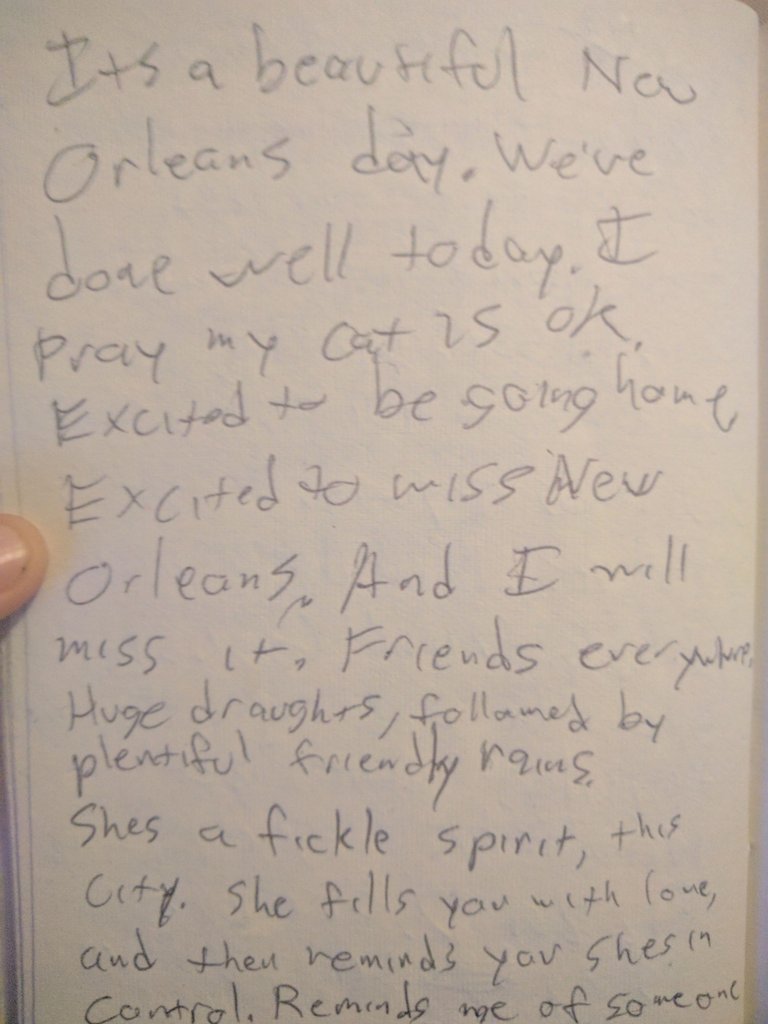 Its a beautiful New
Orleans day. We've
done well today. I
pray my cat is ok.
Excited to be going home
Excited to miss New
Orleans. And I will
miss it. Friends everywhere.
Huge draughts, followed by
plentiful friendly rains.
Shes a fickle spirit, this
City. She fills you with love,
and then reminds you shes in
control. Reminds me of someone